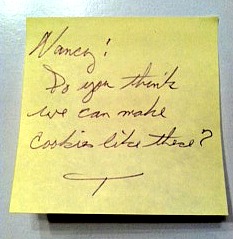 Nancy!
Do you think
we can make
cookies like these?
T